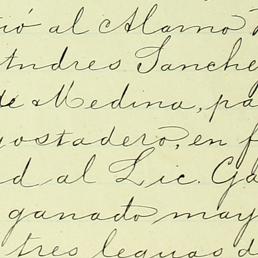 ió al Alamo
Andres Sanche
de Medina, pa
gostadero, en f
d al Lic. Ga
ganado may
tres leguas d